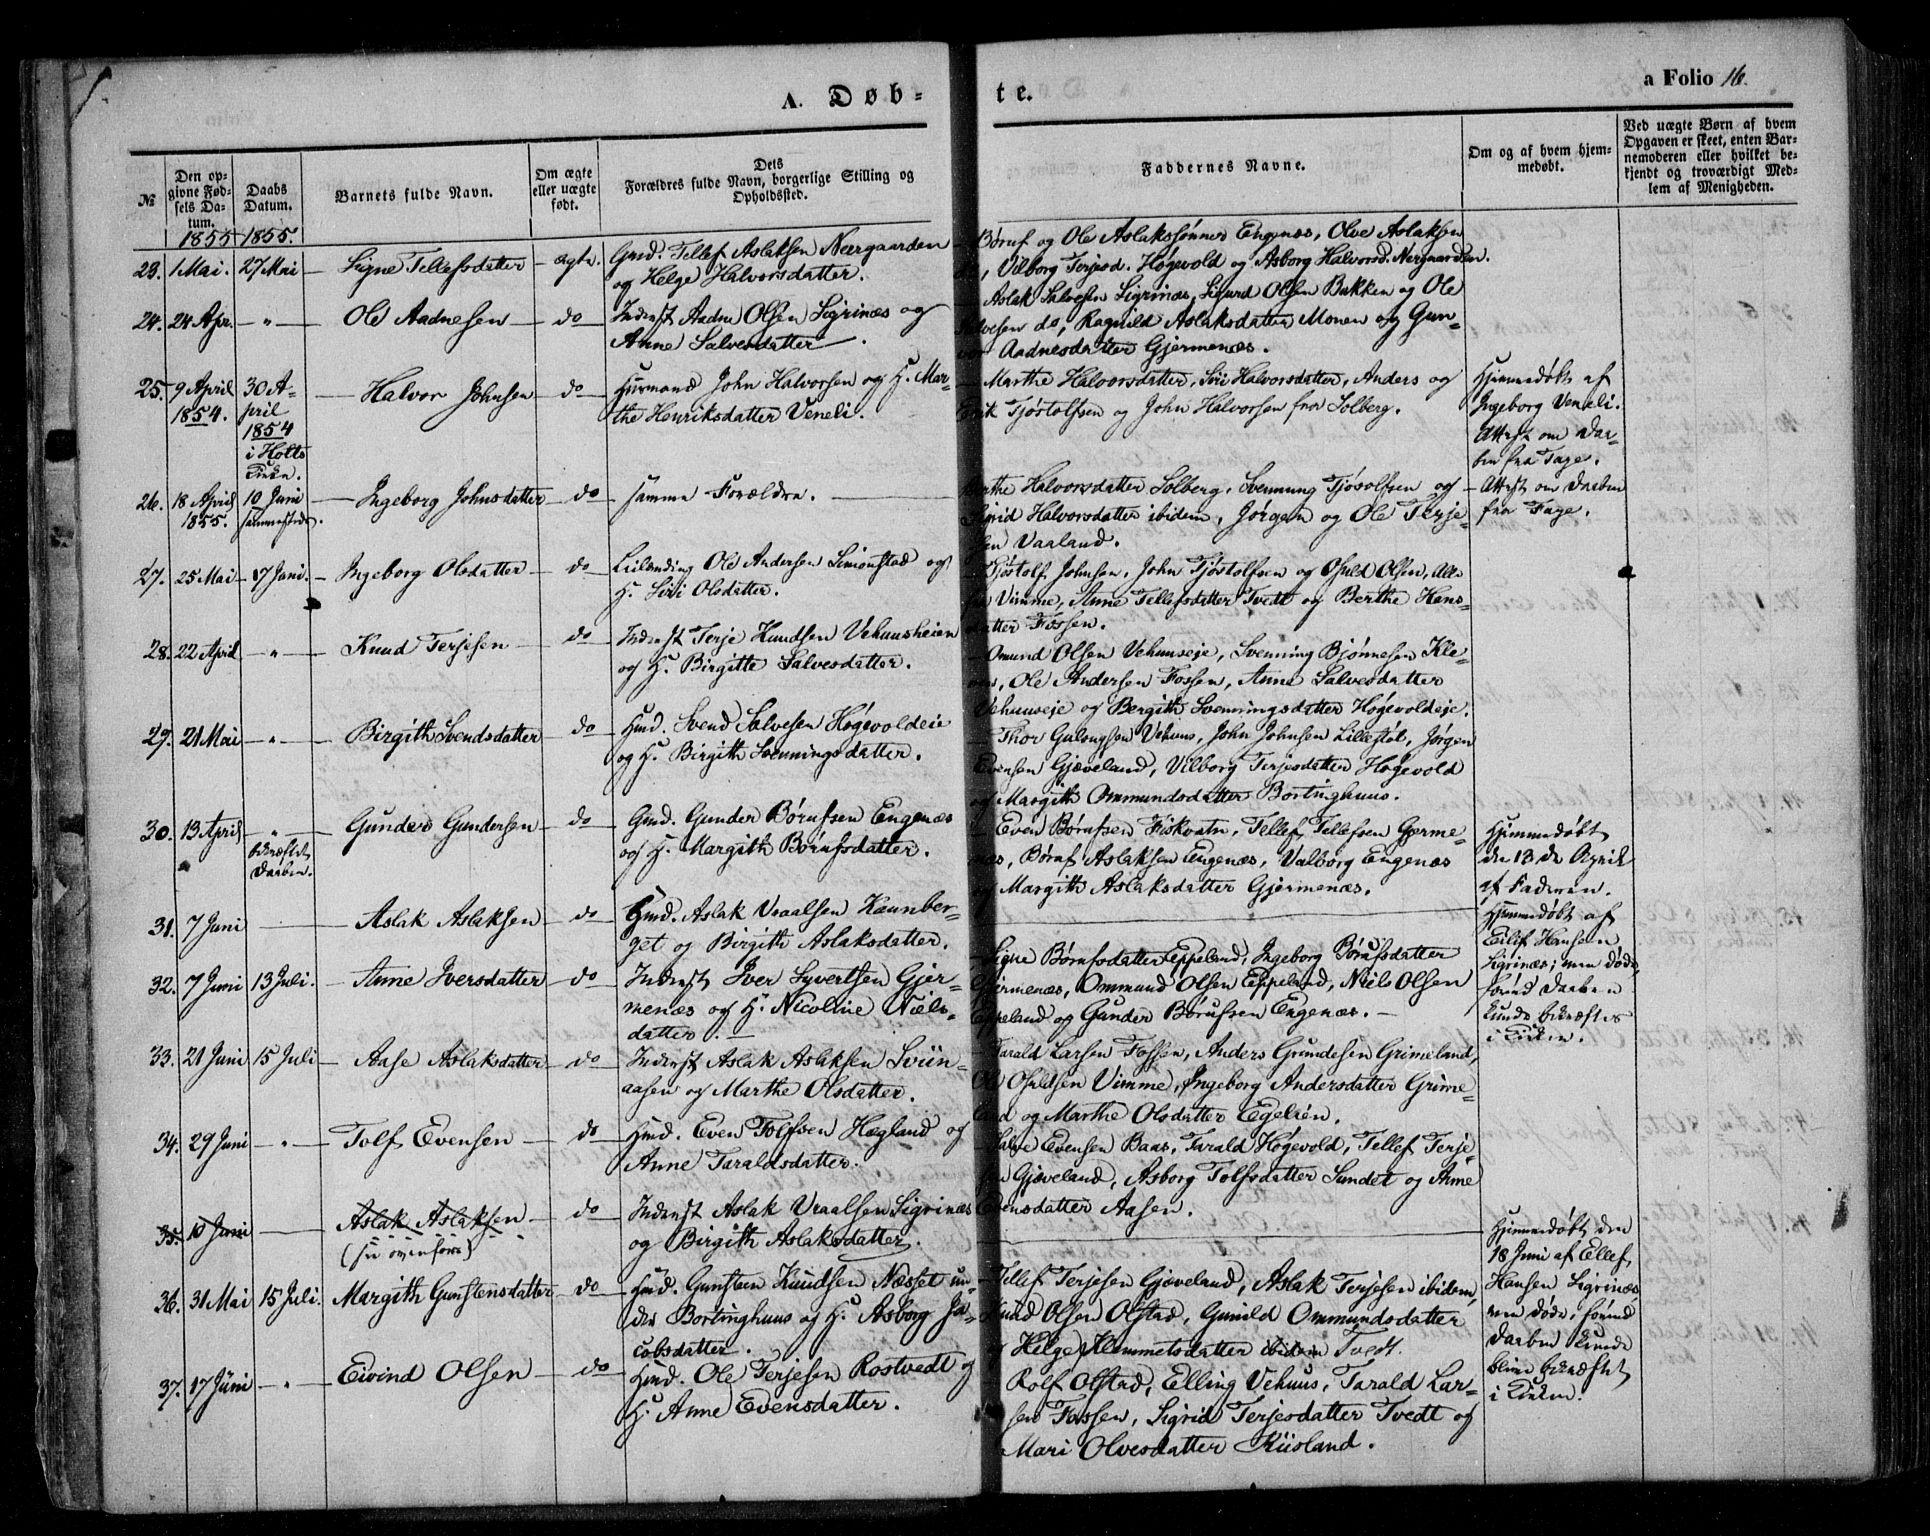 A. Døb-
te.
a Folio 16.
№
Den op-
givne Fød-
sels Da-
tum.
Daabs
Datum.
Barnets fulde Navn.
Om ægte
eller uægte
født.
Dets
Forældres fulde Navn, borgerlige Stilling og
Opholdssted.
Faddernes Navne.
Om og af hvem hjem-
medøbt.
Ved uægte Børn af hvem
Opgaven er skeet, enten Bar-
nemoderen eller hvilket be-
kjendt og troværdigt Med-
lem af Menigheden.
1855 1855.
23. 1 Mai. 27 Mai — Signe Tellefsdatter — ægte.
Gmd. Tellef Aslaksen Neergaarden
og Helge Halvorsdatter.
Børuf og Ole Aslakssønner Engenæs, Olve Aslaksen
do, Valborg Terjesd. Høgevold og Asborg Halvorsd. Nergaarden.
24. 24 Apr. — " — Ole Aadnesen — do
Inderst Aadne Olsen Sigrinæs og
Anne Salvesdatter.
Aslak Salvesen Sigrinæs, Sigurd Olsen Bakken og Ole
Salvesen do, Ragnild Aslaksdatter Monen og Gun-
vor Aadnesdatter Gjermenæs.
25. 9 April
1854.
30 A-
pril
1854
i Holts
Kirke.
Halvor Johnsen do
Huusmand John Halvorsen og H. Mar-
the Henriksdatter Veneli.
Marthe Halvorsdatter, Siri Halvorsdatter, Anders og
Erik Tjøstolfsen og John Halvorsen fra Solberg.
Hjemmedøbt af
Ingeborg Veneli.
Attest om Daa-
ben fra Fage.
26. 18 April
1855.
10 Juni
sammesteds.
Ingeborg Johnsdatter — do — samme Forældre.
Berthe Halvorsdatter Solberg, Svennung Tjøsolfsen og
Sigrid Halvorsdatter ibidem, Jørgen og Ole Terje-
sen Vaaland.
Attest om Daaben
fra Fage.
27. 25 Mai — 17 Juni. — Ingeborg Olsdatter — do
Leilænding Ole Andersen Simonstad og
H. Siri Olsdatter.
Tjøstolf Johnsen, John Tjøstolfsen og Osuld Olsen, Alle
fra Vimme, Anne Tellefsdatter Tvedt og Berthe Hans-
datter Fossen.
28. 22 April — " — Knud Terjesen — do
Inderst Terje Knudsen Vehuusheien
og H. Birgitte Salvesdatter.
Omund Olsen Vehuuseje, Svenning Bjønnesen Kle-
ven, Ole Andersen Fossen, Anne Salvesdatter
Vehuuseje og Bergith Svenningsdatter Høgevoldeje.
29. 21 Mai — " — Birgith Svendsdatter do
Hmd. Svend Salvesen Høgevoldeie
og H. Birgith Svenningsdatter.
Thor Gulougsen Vehuus, John Johnsen Lillestøl, Jørgen
Evensen Gjæveland, Vilborg Terjesdatter Høgevold
og Margith Ommundsdatter Bortinghuus.
30. 13 April — "
bekræftet
Daaben.
Gunder Gundersen — do
Gmd. Gunder Børufsen Engenæs
og H. Margith Børufsdatter.
Even Børufsen Fiskvatn, Tellef Tellefsen Gjerme-
næs, Børuf Aslaksen Engenæs, Valborg Engenæs
og Margith Aslaksdatter Gjermenæs.
Hjemmedøbt
den 13de April
af Faderen.
31. 7 Juni — Aslak Aslaksen — do
Gmd. Aslak Vraalsen Kaunber-
get og Birgith Aslaksdatter.
Hjemmedøbt af
Eilif Hansen
Sigrinæs; men døde,
førend Daaben
kunde bekræftes
i Kirken.
32. 7 Juni 13 Juli. — Anne Iversdatter do
Inderst Iver Syvertsen Gjer-
menæs og H. Nicoline Niels-
datter.
Signe Børufsdatter Eppeland, Ingeborg Børufsdatter
Gjermenæs, Ommund Olsen Eppeland, Niels Olsen
Eppeland og Gunder Børufsen Engenæs.
33. 21 Juni 15 Juli — Aase Aslaksdatter do
Inderst Aslak Aslaksen Sviin-
aasen og Marthe Olsdatter.
Tarald Larsen Fossen, Anders Grundesen Grimeland,
Ole Osuldsen Vimme, Ingeborg Andersdatter Grime-
land og Marthe Olsdatter Egelien.
34. 29 Juni — " — Tolf Evensen — do
Hmd. Even Tolfsen Hægland og
Anne Taraldsdatter.
Evensen Baas, Tarald Høgevold, Tellef Terje-
sen Gjæveland, Asborg Tolfsdatter Sundet og Anne
Evensdatter Aasen.
35. 10 Juni — Aslak Aslaksen — do
(see ovenfore)
Inderst Aslak Vraalsen Sigrinæs
og Birgith Aslaksdatter.
Hjemmedøbt den
18 Juni af Ellef
Hansen Sigrinæs
men døde, førend
Daaben kunde
blive bekræftet
i Kirken.
36. 31 Mai 15 Juli. Margith Gunstensdatter do
Hmd. Gunsteen Knudsen Næsset un-
der Bortinghuus og H. Asborg Ja-
cobsdatter.
Tellef Terjesen Gjæveland, Aslak Terjesen ibidem,
Knud Olsen Olstad, Gunild Ommundsdatter
og Helge Hemmetsdatter ibidem Tvedt.
37. 17 Juni — " — Eivind Olsen — do
Hmd. Ole Terjesen Rostvedt og
H. Anne Evensdatter.
Rolf Olstad, Elling Vehuus, Tarald Lar-
sen Fossen, Sigrid Terjesdatter Tvedt og
Mari Olvesdatter Riisland.